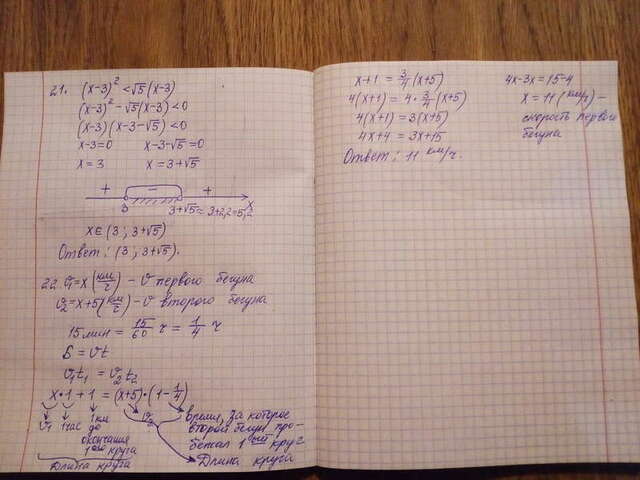 21. (x-3)² < √5(x-3)
(x-3)² - √5(x-3) < 0
(x-3)(x-3-√5) < 0
x-3=0 x-3-√5=0
x=3 x=3+√5
+ - +
3 3+√5≈3+2,2=5,2 x
x∈(3; 3+√5)
Ответ: (3; 3+√5).
22. v₁=x(км/ч) - v первого бегуна
v₂=x+5(км/ч) - v второго бегуна
15 мин = 15/60 ч = 1/4 ч
S = vt
v₁t₁ = v₂t₂
x·1+1 = (x+5)·(1-1/4)
v₁ 1час 1км до окончания 1ого круга
Длина круга
v₂
время, за которое второй бегун пробежал 1ый круг
Длина круга
x+1 = 3/4(x+5)
4(x+1) = 4·3/4(x+5)
4(x+1) = 3(x+5)
4x+4 = 3x+15
Ответ: 11 км/ч.
4x-3x=15-4
x = 11(км/ч) -
скорость первого
бегуна